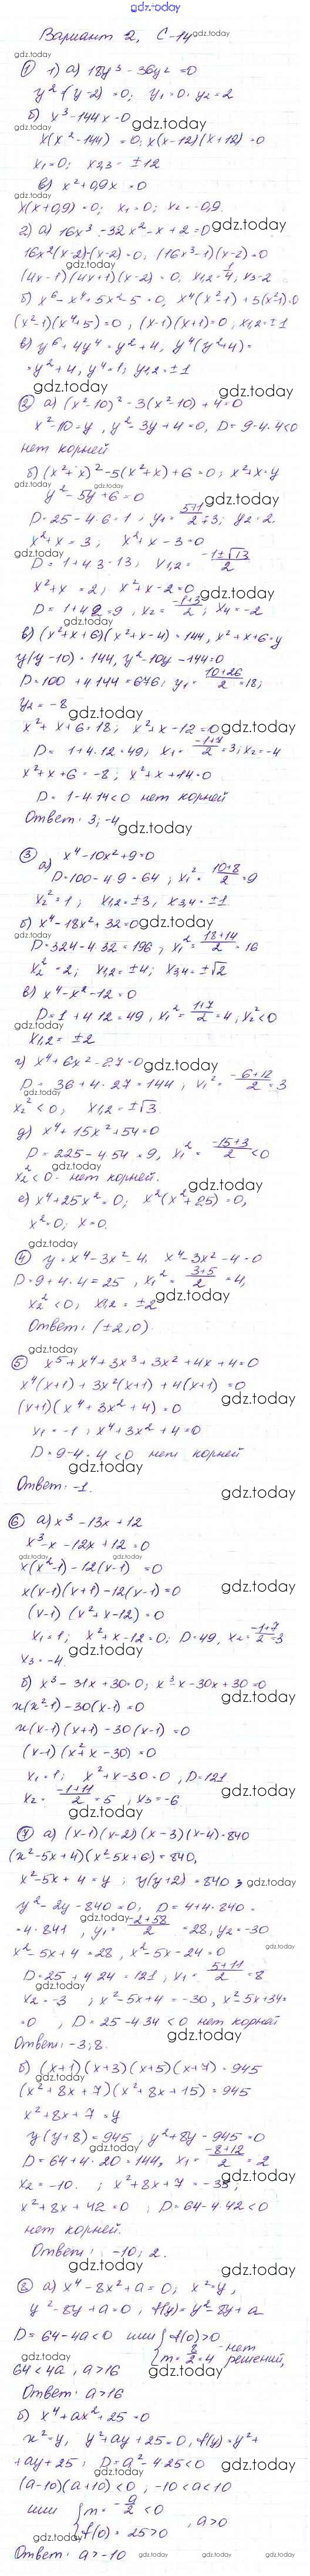 gdz.today
Вариант 2, С-14
① 1) а) 18y³ - 36y² = 0
y²·(y-2) = 0; y₁ = 0; y₂ = 2
б) x³ - 144x = 0
x(x² - 144) = 0; x(x-12)(x+12) = 0
x₁ = 0; x₂,₃ = ±12
в) x² + 0,9x = 0
x(x+0,9) = 0; x₁ = 0; x₂ = -0,9
2) а) 16x³ - 32x² - x + 2 = 0
16x²(x-2) - (x-2) = 0, (16x²-1)(x-2) = 0
(4x-1)(4x+1)(x-2) = 0, x₁,₂ = 1/4, x₃ = 2
б) x⁶ - x⁴ + 5x² - 5 = 0, x⁴(x²-1) + 5(x²-1) = 0
(x²-1)(x⁴+5) = 0, (x-1)(x+1) = 0; x₁,₂ = ±1
в) y⁶ + 4y⁴ = y² + 4, y⁴(y²+4) =
= y² + 4, y⁴ = 1; y₁,₂ = ±1
② а) (x²-10)² - 3(x²-10) + 4 = 0
x² - 10 = y, y² - 3y + 4 = 0, D = 9 - 4·4 < 0
нет корней
б) (x²+x)² - 5(x²+x) + 6 = 0; x² + x = y
y² - 5y + 6 = 0
D = 25 - 4·6 = 1, y₁ = (5+1)/2 = 3; y₂ = 2
x² + x = 3; x² + x - 3 = 0
D = 1 + 4·3 = 13, x₁,₂ = (-1±√13)/2
x² + x = 2; x² + x - 2 = 0
D = 1 + 4·2 = 9, x₂ = (-1+3)/2; x₄ = -2
в) (x²+x+6)(x²+x-4) = 144, x²+x+6 = y
y(y-10) = 144, y² - 10y - 144 = 0
D = 100 + 4·144 = 676; y₁ = (10+26)/2 = 18;
y₂ = -8
x² + x + 6 = 18; x² + x - 12 = 0
D = 1 + 4·12 = 49; x₁ = (-1+7)/2 = 3; x₂ = -4
x² + x + 6 = -8; x² + x + 14 = 0
D = 1 - 4·14 < 0 нет корней
Ответ: 3; -4
③ а) x⁴ - 10x² + 9 = 0
D = 100 - 4·9 = 64; x₁² = (10+8)/2 = 9
x₂² = 1; x₁,₂ = ±3, x₃,₄ = ±1
б) x⁴ - 18x² + 32 = 0
D = 324 - 4·32 = 196, x₁² = (18+14)/2 = 16
x₂² = 2; x₁,₂ = ±4; x₃,₄ = ±√2
в) x⁴ - x² - 12 = 0
D = 1 + 4·12 = 49, x₁² = (1+7)/2 = 4, x₂² < 0
x₁,₂ = ±2
г) x⁴ + 6x² - 27 = 0
D = 36 + 4·27 = 144, x₁² = (-6+12)/2 = 3
x₂² < 0; x₁,₂ = ±√3
д) x⁴ + 15x² + 54 = 0
D = 225 - 4·54 = 9, x₁² = (-15+3)/2 < 0
x₂² < 0 - нет корней.
е) x⁴ + 25x² = 0; x²(x²+25) = 0,
x² = 0; x = 0.
④ y = x⁴ - 3x² - 4, x⁴ - 3x² - 4 = 0
D = 9 + 4·4 = 25, x₁² = (3+5)/2 = 4,
x₂² < 0; x₁,₂ = ±2
Ответ: (±2; 0)
⑤ x⁵ + x⁴ + 3x³ + 3x² + 4x + 4 = 0
x⁴(x+1) + 3x²(x+1) + 4(x+1) = 0
(x+1)(x⁴+3x²+4) = 0
x₁ = -1; x⁴ + 3x² + 4 = 0
D = 9 - 4·4 < 0 нет корней
Ответ: -1.
⑥ а) x³ - 13x + 12
x³ - x - 12x + 12 = 0
x(x²-1) - 12(x-1) = 0
x(x-1)(x+1) - 12(x-1) = 0
(x-1)(x²+x-12) = 0
x₁ = 1; x² + x - 12 = 0; D = 49, x₂ = (-1+7)/2 = 3
x₃ = -4.
б) x³ - 31x + 30 = 0; x³ - x - 30x + 30 = 0
x(x²-1) - 30(x-1) = 0
x(x-1)(x+1) - 30(x-1) = 0
(x-1)(x²+x-30) = 0
x₁ = 1; x² + x - 30 = 0, D = 121
x₂ = (-1+11)/2 = 5; x₃ = -6
⑦ а) (x-1)(x-2)(x-3)(x-4) = 840
(x²-5x+4)(x²-5x+6) = 840,
x² - 5x + 4 = y; y(y+2) = 840
y² - 2y - 840 = 0; D = 4 + 4·840 =
= 4·841, y₁ = (-2+58)/2 = 28; y₂ = -30
x² - 5x + 4 = 28, x² - 5x - 24 = 0
D = 25 + 4·24 = 121; x₁ = (5+11)/2 = 8
x₂ = -3; x² - 5x + 4 = -30, x² - 5x + 34 =
= 0, D = 25 - 4·34 < 0 нет корней
Ответ: -3; 8
б) (x+1)(x+3)(x+5)(x+7) = 945
(x²+8x+7)(x²+8x+15) = 945
x² + 8x + 7 = y
y(y+8) = 945; y² + 8y - 945 = 0
D = 64 + 4·20 = 144, x₁ = (-8+12)/2 = 2
x₂ = -10. ; x² + 8x + 7 = -35;
x² + 8x + 42 = 0; D = 64 - 4·42 < 0
нет корней.
Ответ: -10; 2.
⑧ а) x⁴ - 8x² + a = 0; x² = y,
y² - 8y + a = 0, f(y) = y² - 8y + a
D = 64 - 4a < 0 или { f(0) > 0
m = 8/2 = 4 - нет решений,
64 < 4a, a > 16
Ответ: a > 16
б) x⁴ + ax² + 25 = 0
x² = y, y² + ay + 25 = 0, f(y) = y² +
+ ay + 25; D = a² - 4·25 < 0
(a-10)(a+10) < 0; -10 < a < 10
или { m = -a/2 < 0
f(0) = 25 > 0, a > 0
Ответ: a > -10